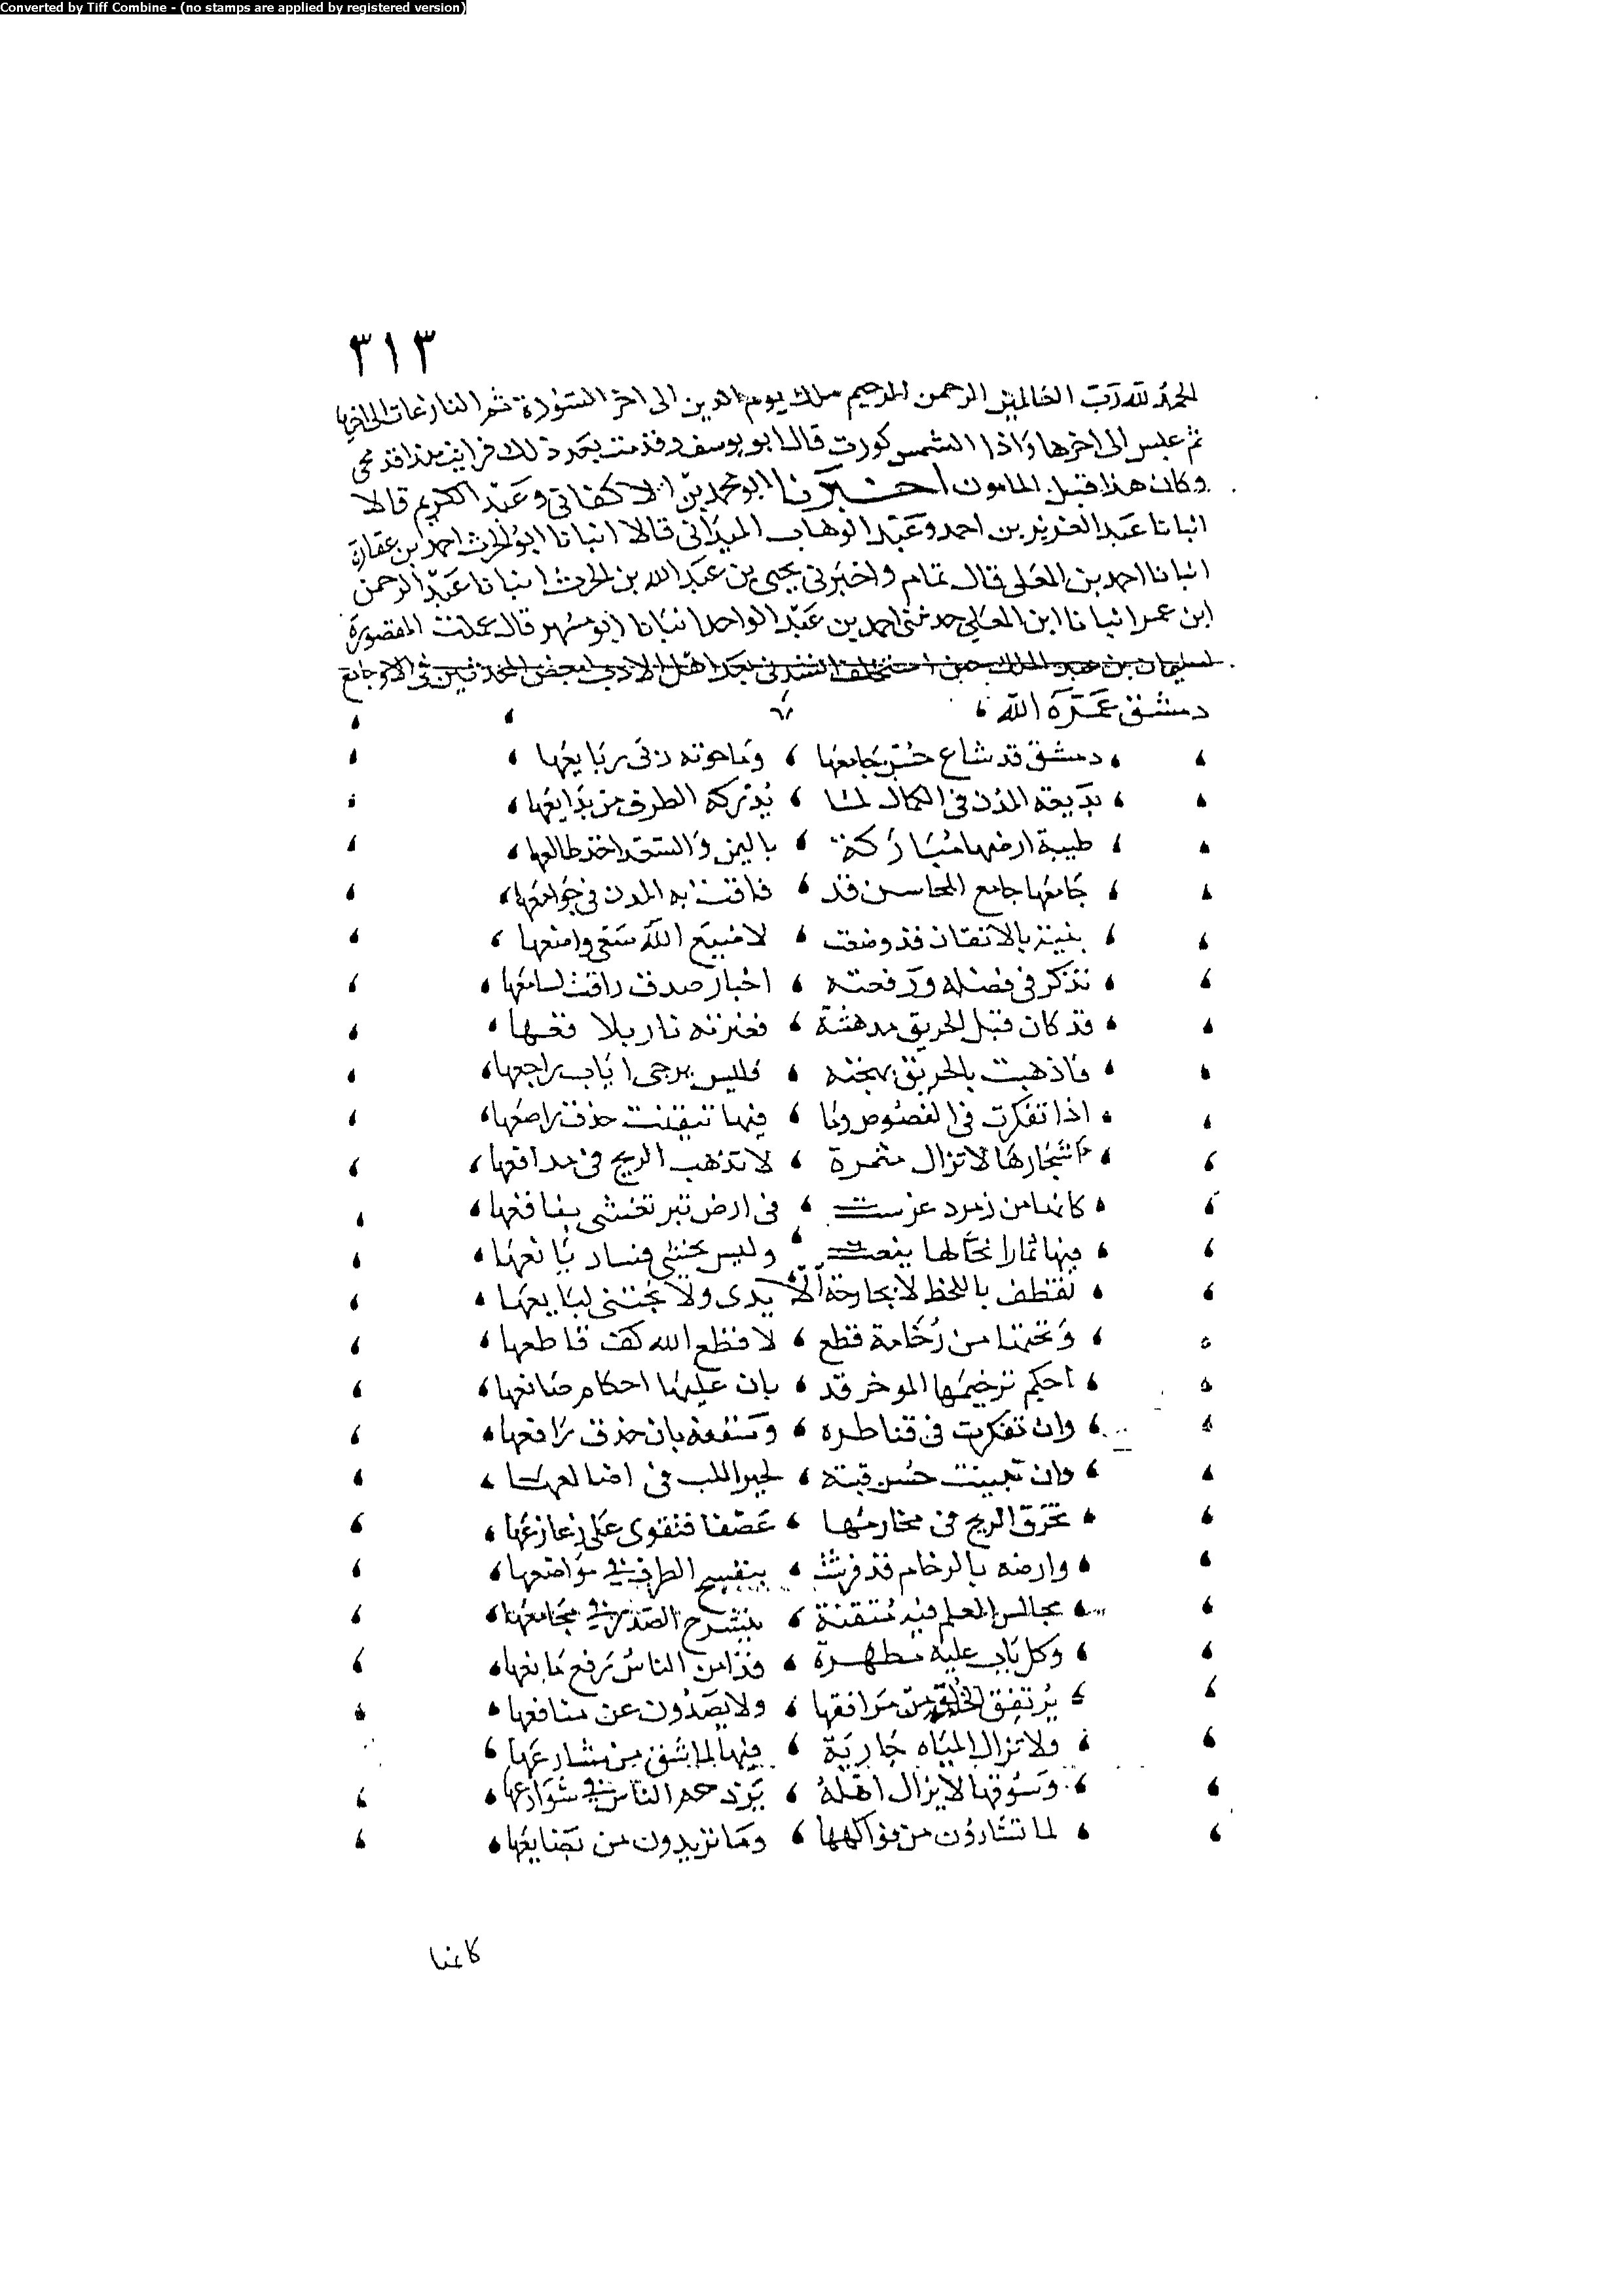 Converted by Tiff Combine - (no stamps are applied by registered version)
٣١٣
الحمد لله رب العالمين الرحمن الرحيم ملك يوم الدين الى اخر السورة ثم النازعات الى اخرها
ثم عبس الى اخرها واذا الشمس كورت قال ابو يوسف وقدمت بعد ذلك فرايت هذا قد محى
وكان هذا قبل المامون اخبرنا ابو محمد بن الاكفانى وعبد الكريم قالا
انبانا عبد العزيز بن احمد وعبد الوهاب الميدانى قالا انبانا ابو الحرث احمد بن عمارة
انبانا احمد بن المعلى قال تمام واخبرنى يحيى بن عبد الله بن الحرث انبانا عبد الرحمن
ابن عمر انبانا ابن المعلى حدثنى احمد بن عبد الواحد انبانا ابو مسهر قال عملت المقصورة
لسليمان بن عبد الملك حين استخلف انشدنى بعد اهل الادب لبعض المحدثين فى جامع
دمشق عمره الله
دمشق قد شاع حسن جامعها ، وما حوته ربى رباعها
بديعة المدن فى الكمال لما ، يدركه الطرف من بدايعها
طيبة ارضها مباركة ، باليمن والسعد اخذ طالعها
جامعها جامع المحاسن قد ، فاقت به المدن فى جوامعها
بنية بالاتقان قد وضعت ، لا ضيع الله سعى واضعها
تذكر فى فضله ورفعته ، اخبار صدق راقت لسامعها
قد كان قبل الحريق مدهشة ، فغيرته نار بلا قعها
فاذهبت بالحريق بهجته ، فليس يرجى اياب راجعها
اذا تفكرت فى الفصوص وما ، فيها تيقنت حذق راصعها
اشجارها لا تزال مثمرة ، لا تذهب الريح فى مدافعها
كانها من زمرد غرست ، فى ارض تبر تغشى بفاقعها
فيها ثمار تخالها ينعت ، وليس يخشى فساد يانعها
تقطف باللحظ لا بجارحة الا يدى ولا تجتنى لبايعها
وتحتها من رخامة قطع ، لا قطع الله كف قاطعها
احكم ترخيمها الموخر قد ، بان عليها احكام صانعها
وان تفكرت فى قناطره ، وسقفه بان حذق رافعها
وان تبينت حسن قبته ، تحير اللب فى اضالعها
تخرق الريح فى مخارمها ، عصفا فتقوى على زعازعها
وارضه بالرخام قد فرشت ، ينفسح الطرف فى مواضعها
مجالس العلم فيه متقنة ، ينشرح الصدر فى مجامعها
وكل باب عليه مطهرة ، قد امن الناس رفع مانعها
يرتفق الخلق من مرافقها ، ولا يصدون عن منافعها
ولا تزال المياه جارية ، فيها لما شق من مشارعها
وسوقها لا يزال اهله ، يزدحم الناس فى شوارعها
لما تشاؤن من فواكهها ، وما تريدون من بضايعها
كانها